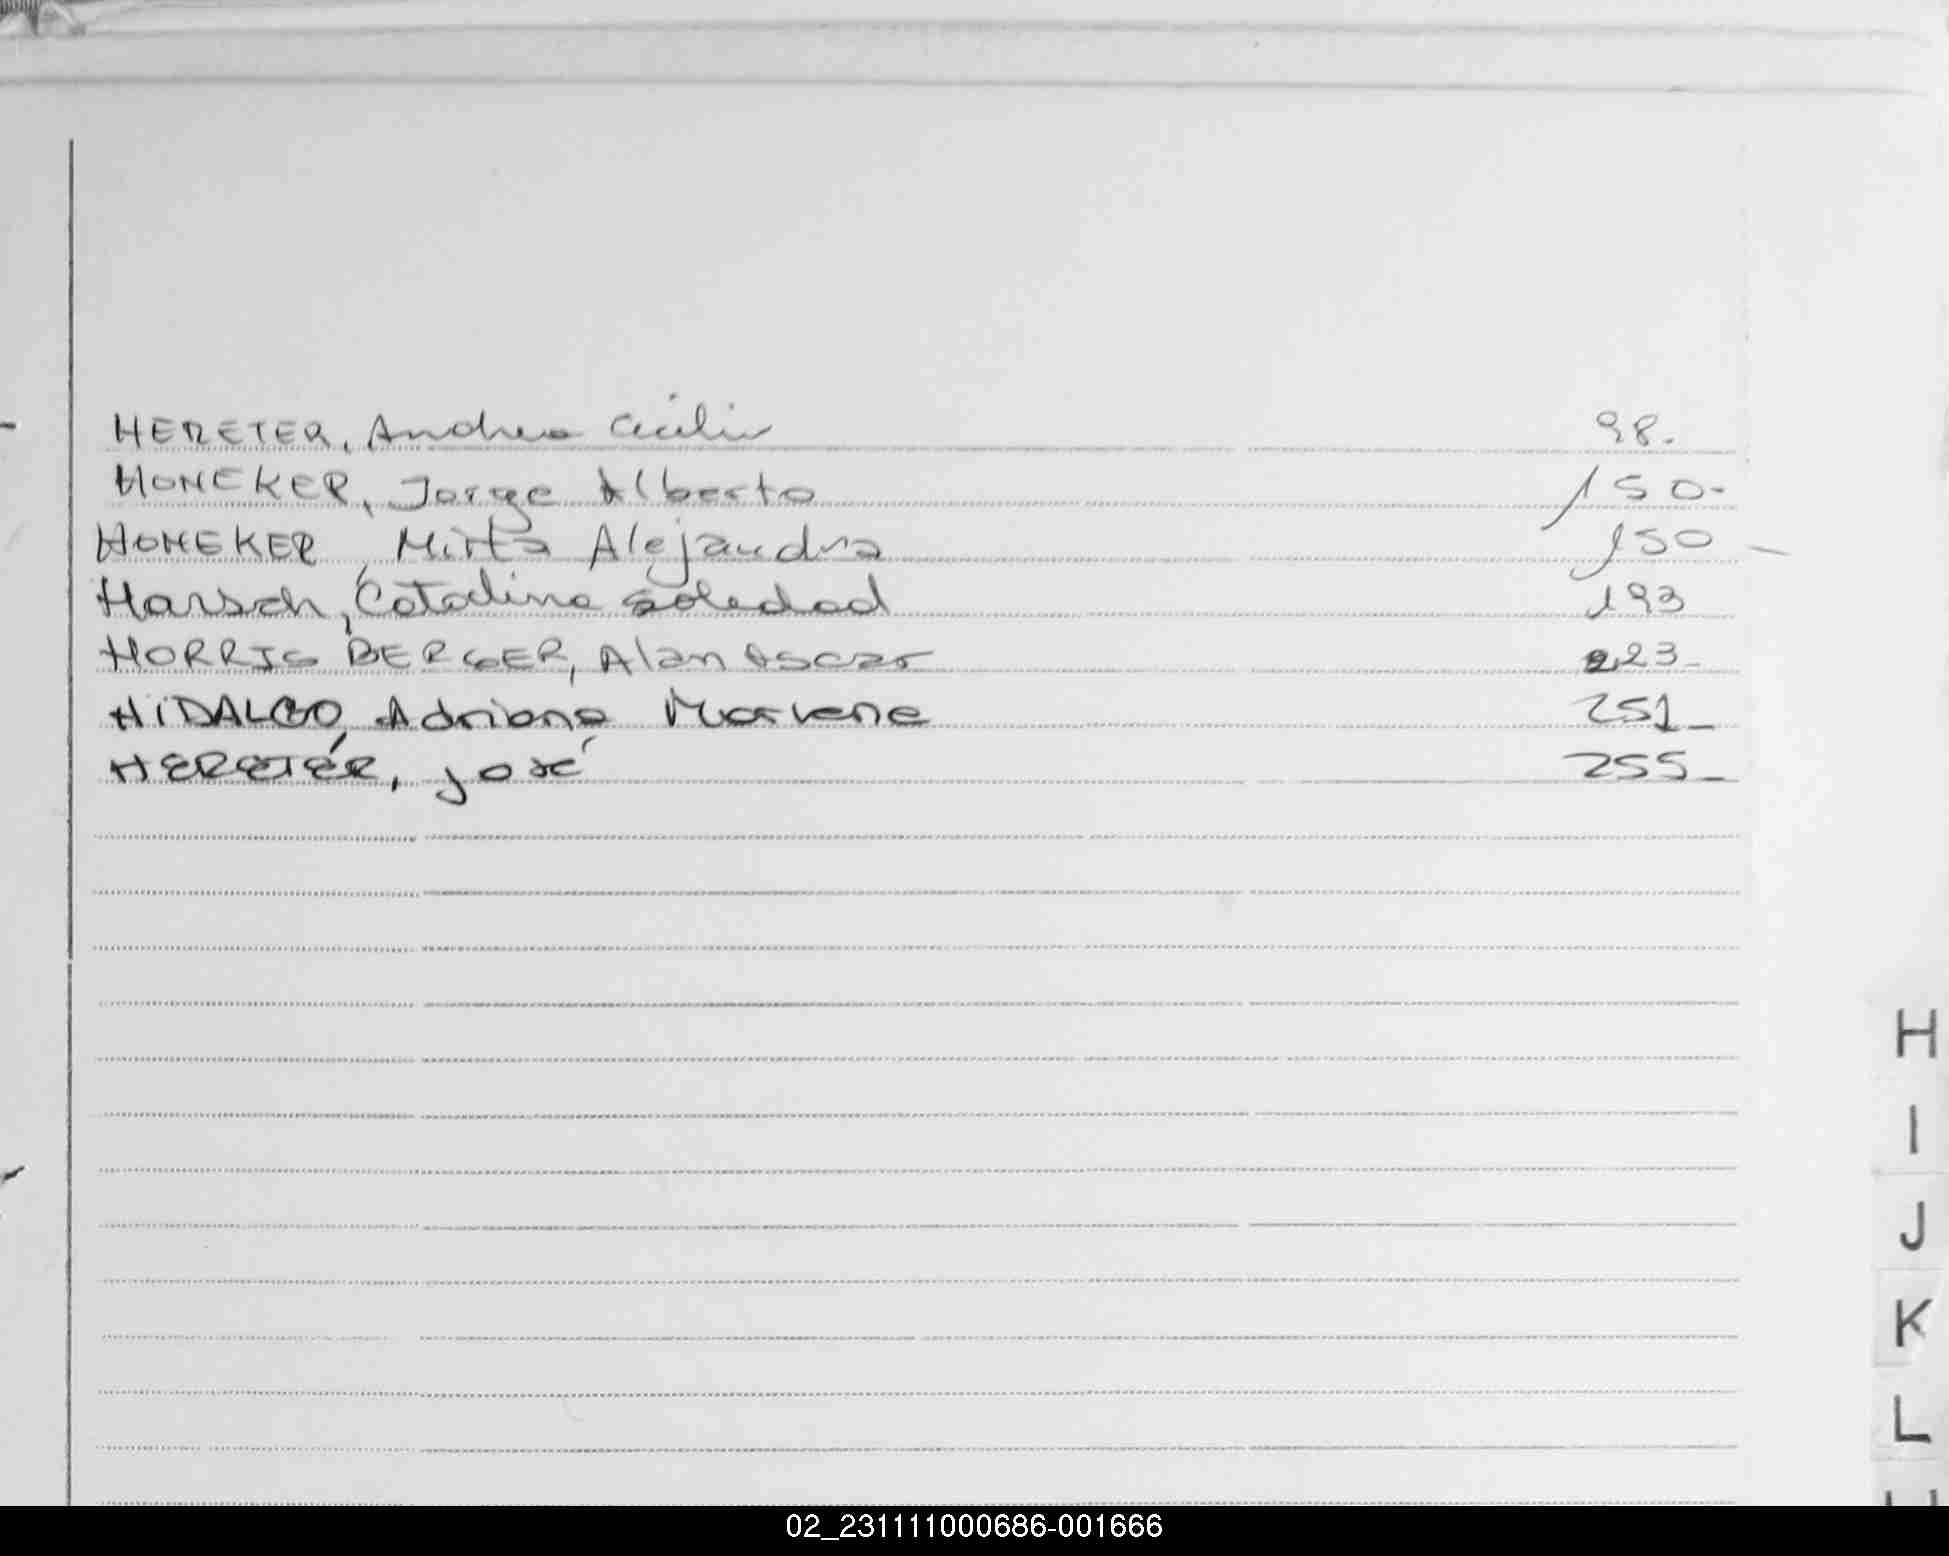 HERETER, Andrea Cecilia 98.
HONEKER, Jorge Alberto 150-
HONEKER, Mirta Alejandra 150-
Harsch, Catalina Soledad 193
HORRIS BERGER, Alan Oscar 223-
HIDALGO, Adriana Marlene 251-
HERETÉR, José 255-
H
I
J
K
L
02_231111000686-001666